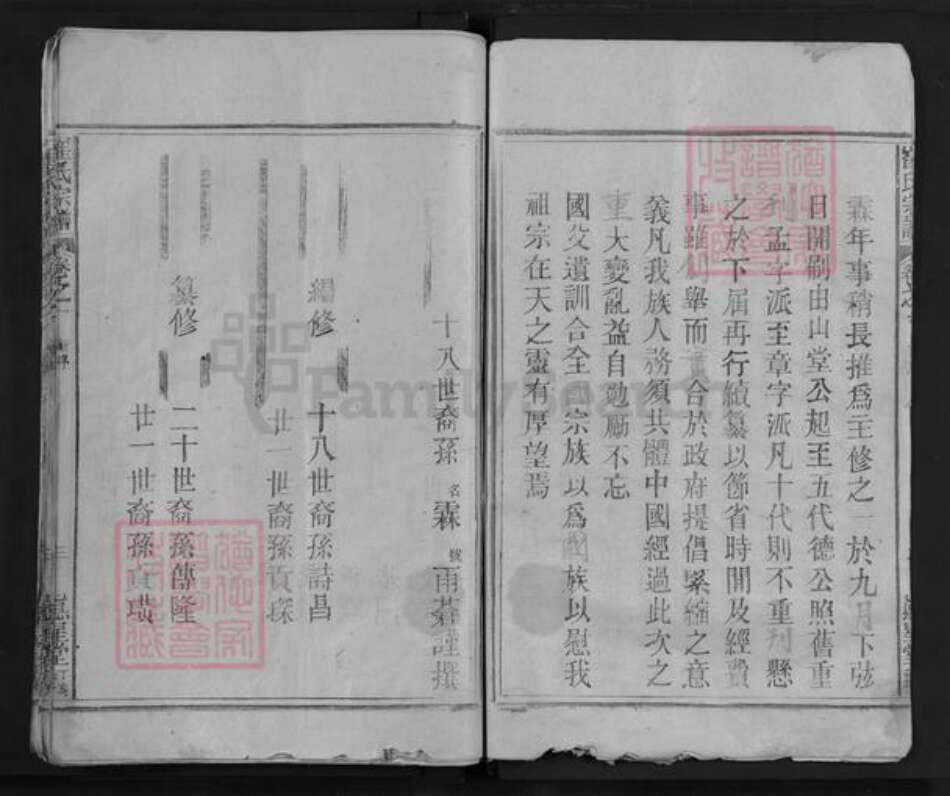 霖年事稍長推爲主修之一於九月下弦
日開刷由山堂公起至五代德公照舊重
刊孟字派至章字派凡十代則不重刊懸
之於下屆再行續纂以節省時間及經費
事雖 舉而 合於政府提倡緊縮之意
義凡我族人務須共體中國經過此次之
重大變亂益自勉勵不忘
國父遺訓合全國宗族以爲國族以慰我
祖宗在天之靈有厚望焉
十八世裔孫 名霖 號雨蒼謹撰
編修 十八世裔孫詩昌
廿一世裔孫貢琛
纂修 二十世裔孫傳隆
廿一世裔孫貢璜
氏宗譜 卷之
FamilySearch